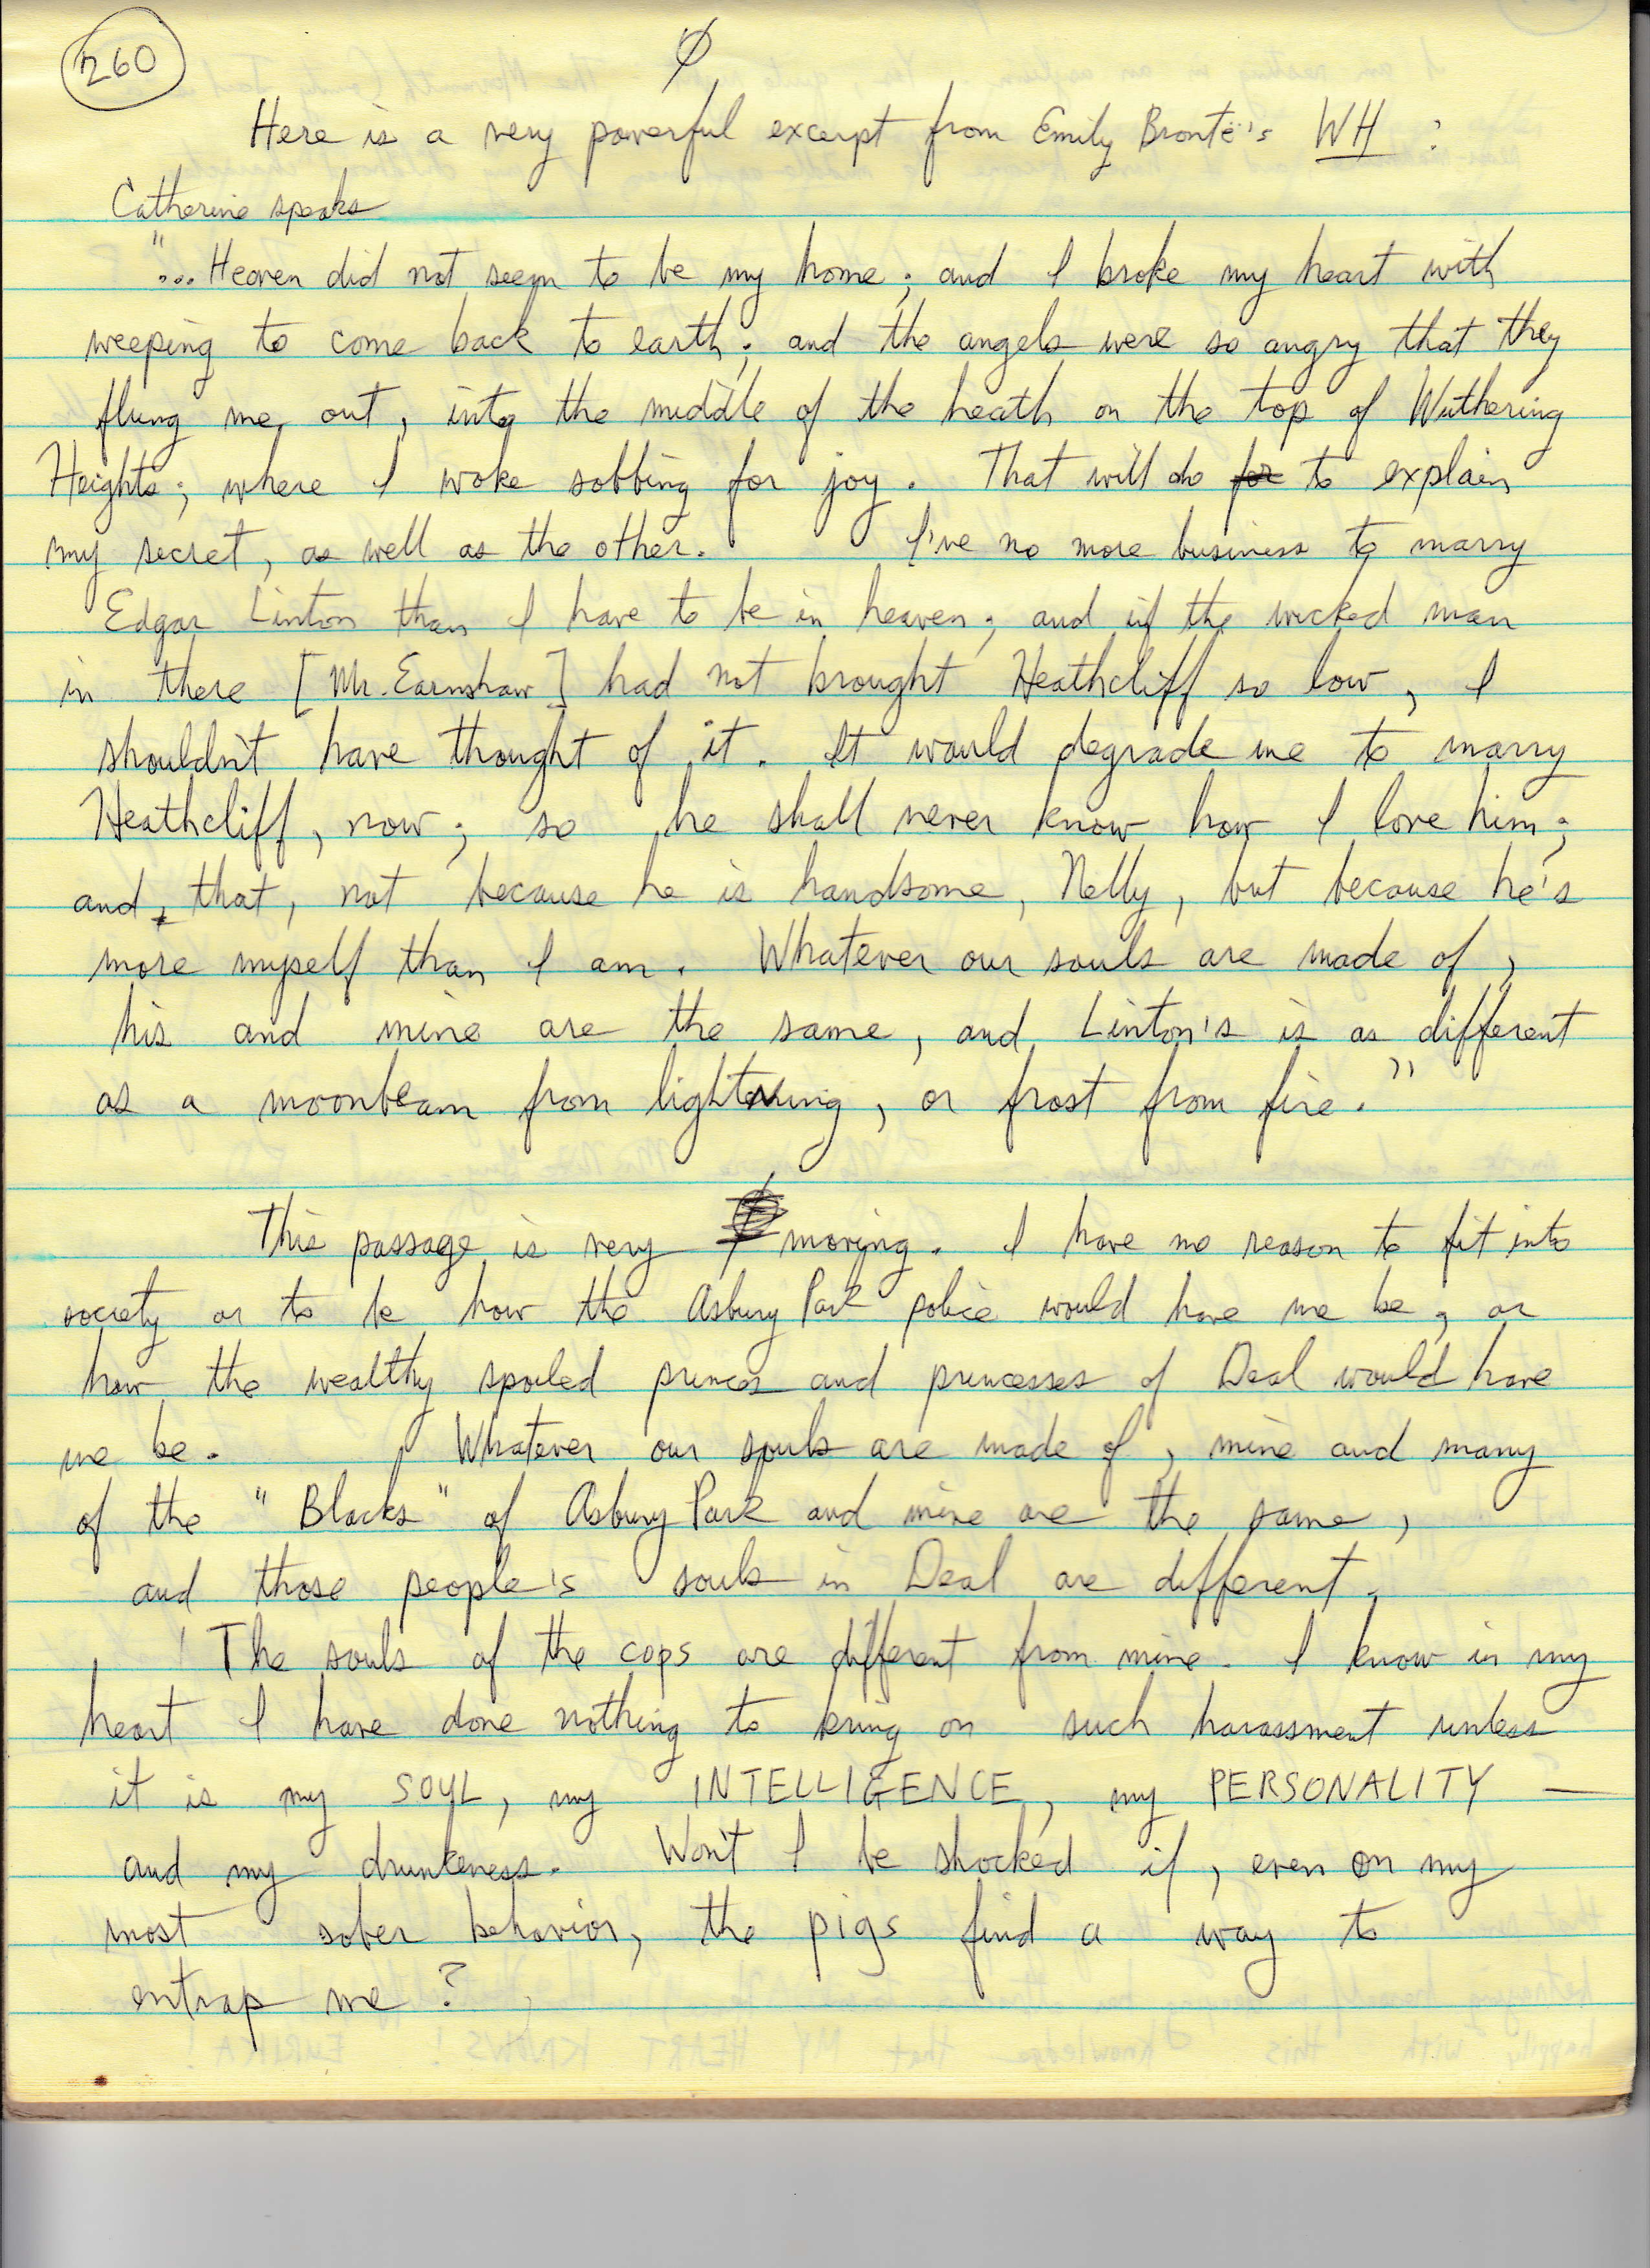 260
Φ
Here is a very powerful excerpt from Emily Brontë's WH :
Catherine speaks
"... Heaven did not seem to be my home; and I broke my heart with
weeping to come back to earth; and the angels were so angry that they
flung me out, into the middle of the heath on the top of Wuthering
Heights; where I woke sobbing for joy. That will do for to explain
my secret, as well as the other. I've no more business to marry
Edgar Linton than I have to be in heaven; and if the wicked man
in there [Mr. Earnshaw] had not brought Heathcliff so low, I
shouldn't have thought of it. It would degrade me to marry
Heathcliff, now; so he shall never know how I love him;
and, that, not because he is handsome, Nelly, but because he's
more myself than I am. Whatever our souls are made of,
his and mine are the same, and Linton's is as different
as a moonbeam from lightning, or frost from fire."
This passage is very moving. I have no reason to fit into
society or to be how the Asbury Park police would have me be, or
how the wealthy spoiled princes and princesses of Deal would have
me be. Whatever our souls are made of, mine and many
of the "Blacks" of Asbury Park and mine are the same,
and those people's souls in Deal are different.
The souls of the cops are different from mine. I know in my
heart I have done nothing to bring on such harassment unless
it is my SOUL, my INTELLIGENCE, my PERSONALITY —
and my drunkeness. Won't I be shocked if, even on my
most sober behavior, the pigs find a way to
entrap me?